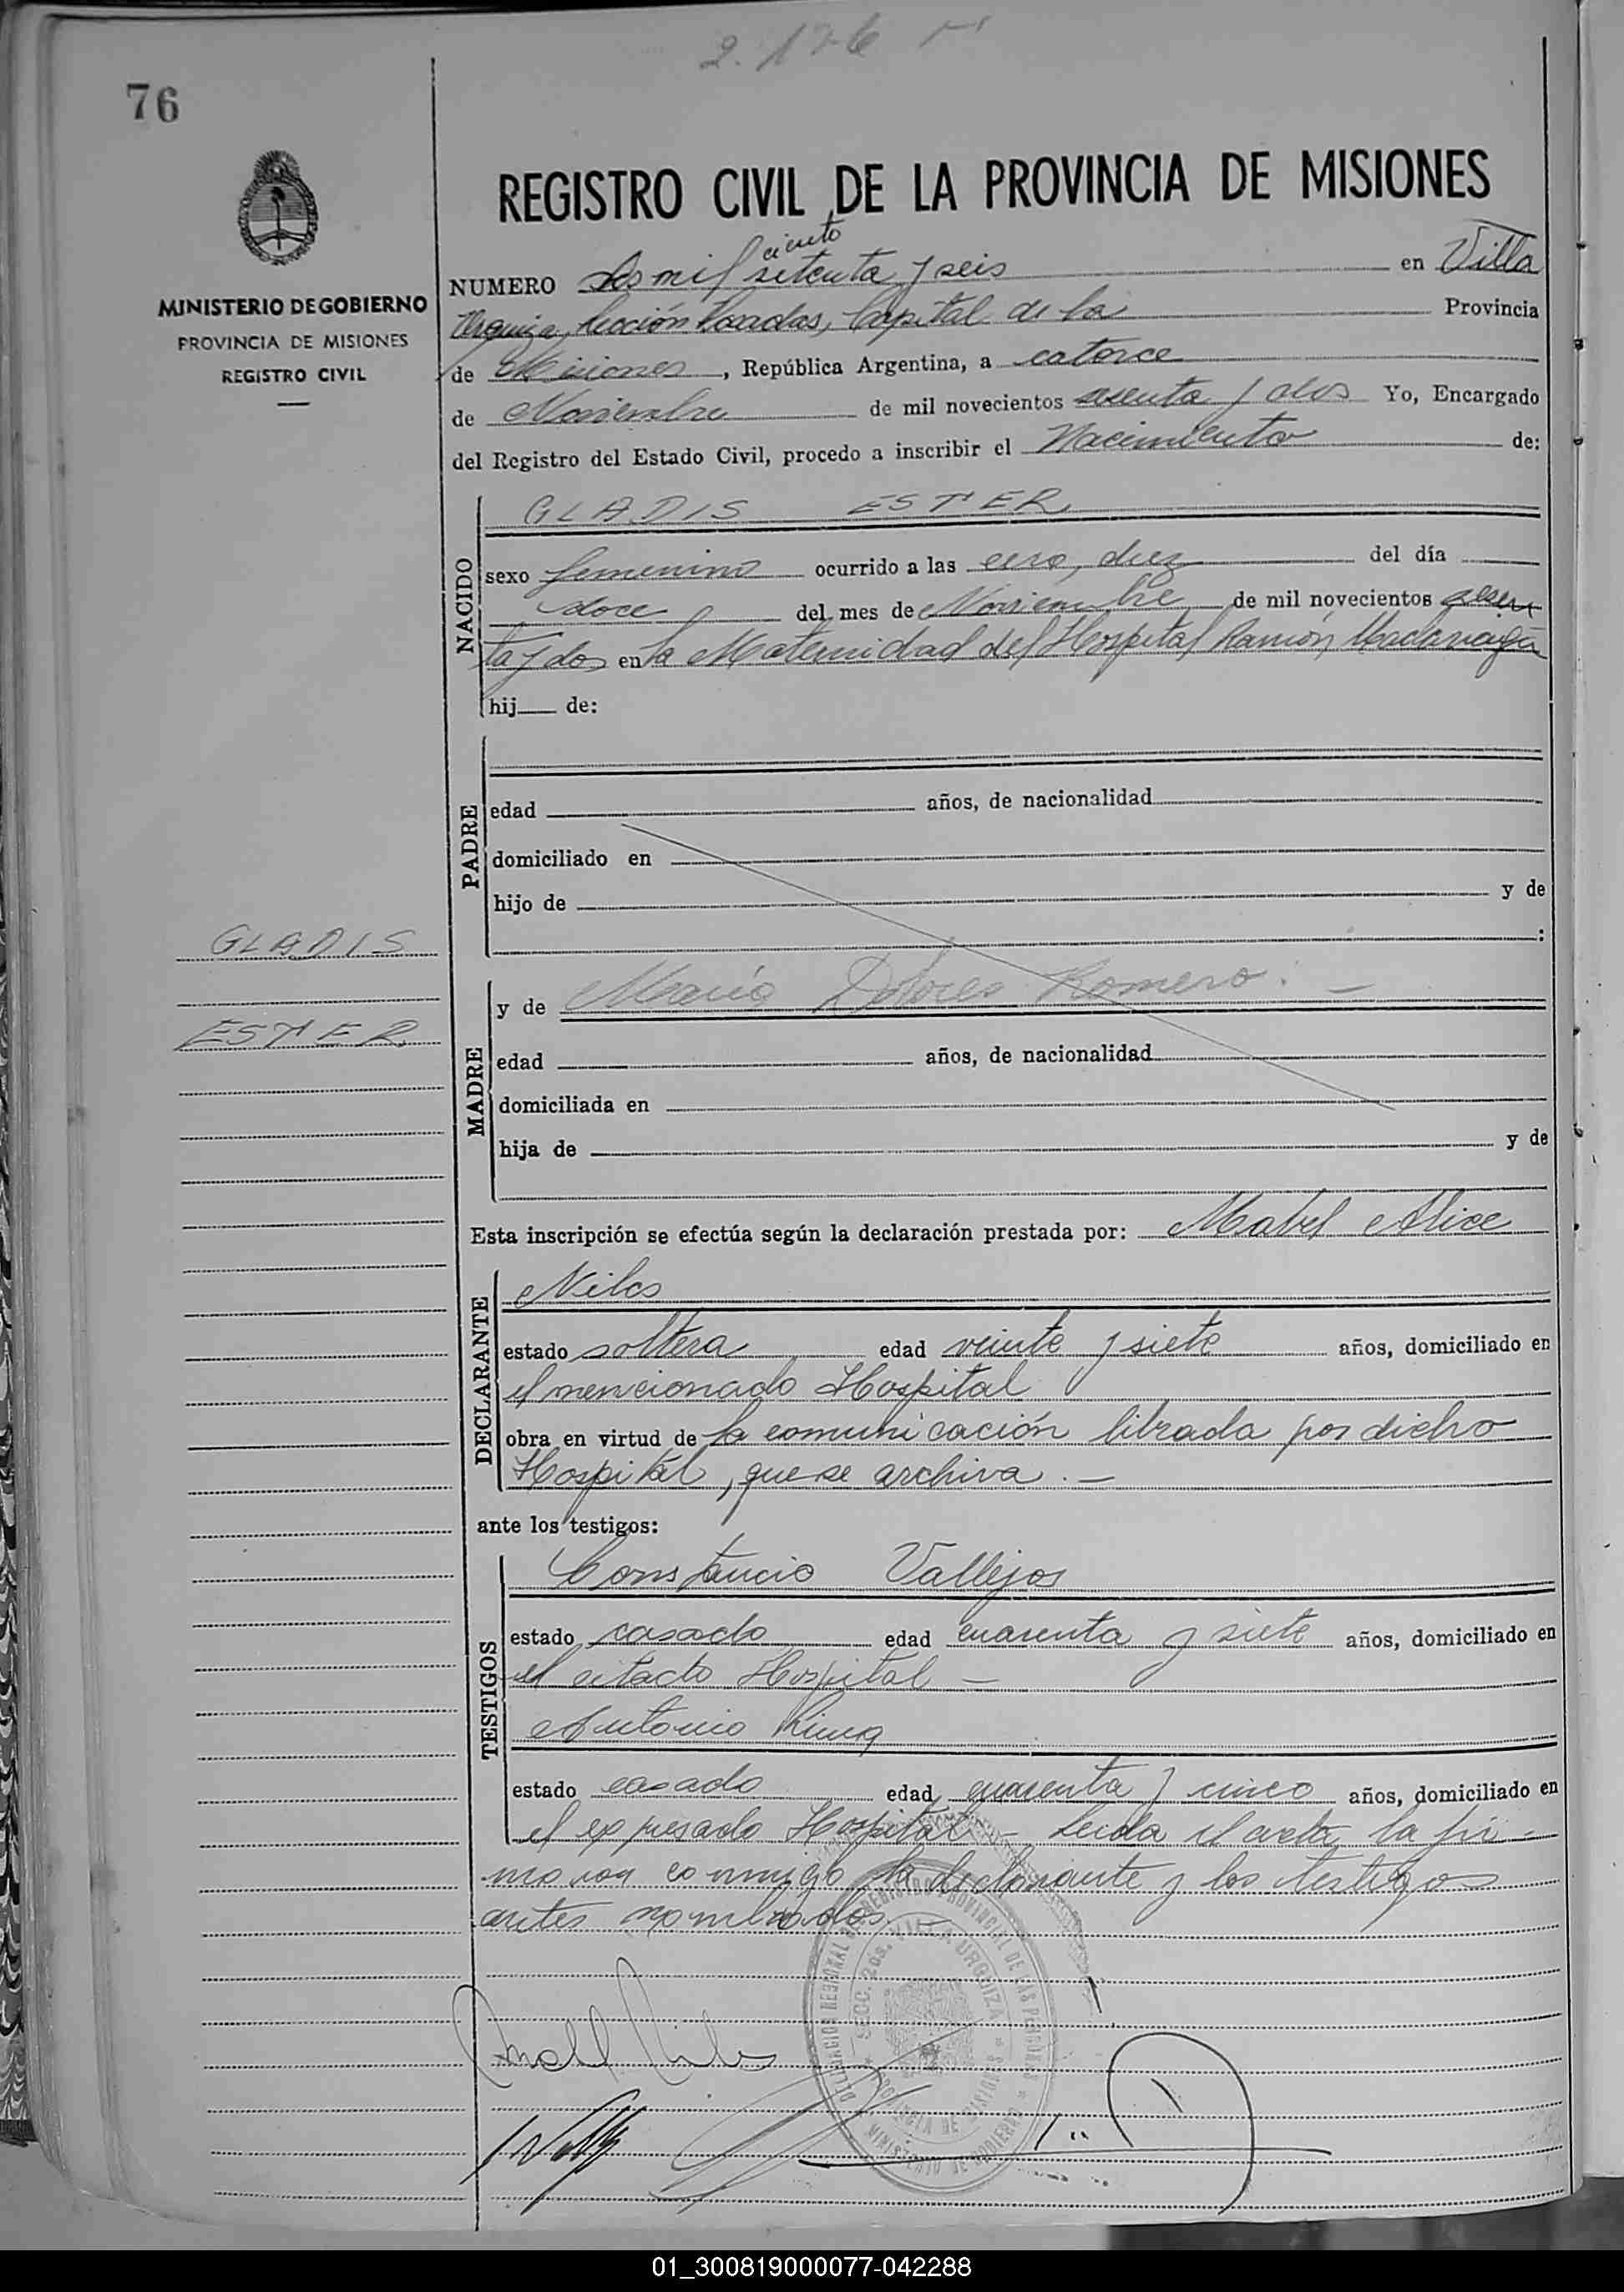 2.176
76
REGISTRO CIVIL DE LA PROVINCIA DE MISIONES
MINISTERIO DE GOBIERNO
PROVINCIA DE MISIONES
REGISTRO CIVIL
ciento
NUMERO Dos mil setenta y seis en Villa
Urquiza, Sección Posadas, Capital de la Provincia
de Misiones, República Argentina, a catorce
de Noviembre de mil novecientos sesenta y dos Yo, Encargado
del Registro del Estado Civil, procedo a inscribir el Nacimiento de:
NACIDO
GLADIS ESTER
sexo femenino ocurrido a las cero, diez del día
doce del mes de Noviembre de mil novecientos sesen
ta y dos en la Maternidad del Hospital Ramón Madariaga
hij de:
PADRE
edad años, de nacionalidad
domiciliado en
hijo de y de
:
GLADIS
ESTER
MADRE
y de María Dolores Romero. —
edad años, de nacionalidad
domiciliada en
hija de y de
Esta inscripción se efectúa según la declaración prestada por: Mabel Alice
DECLARANTE
Niles
estado soltera edad veinte y siete años, domiciliado en
el mencionado Hospital
obra en virtud de la comunicación librada por dicho
Hospital, que se archiva. —
ante los testigos:
TESTIGOS
Constancio Vallejos
estado casado edad cuarenta y siete años, domiciliado en
el citado Hospital —
Antonio
estado casado edad cuarenta y cinco años, domiciliado en
el expresado Hospital — Leida el acta, la fir-
maron conmigo la declarante y los testigos
antes nombrados. —
DELEGACION REGIONAL DEL REGISTRO PROVINCIAL DE LAS PERSONAS
SECC. 2da. VILLA URQUIZA
PROVINCIA DE MISIONES
MINISTERIO DE GOBIERNO
01_300819000077-042288